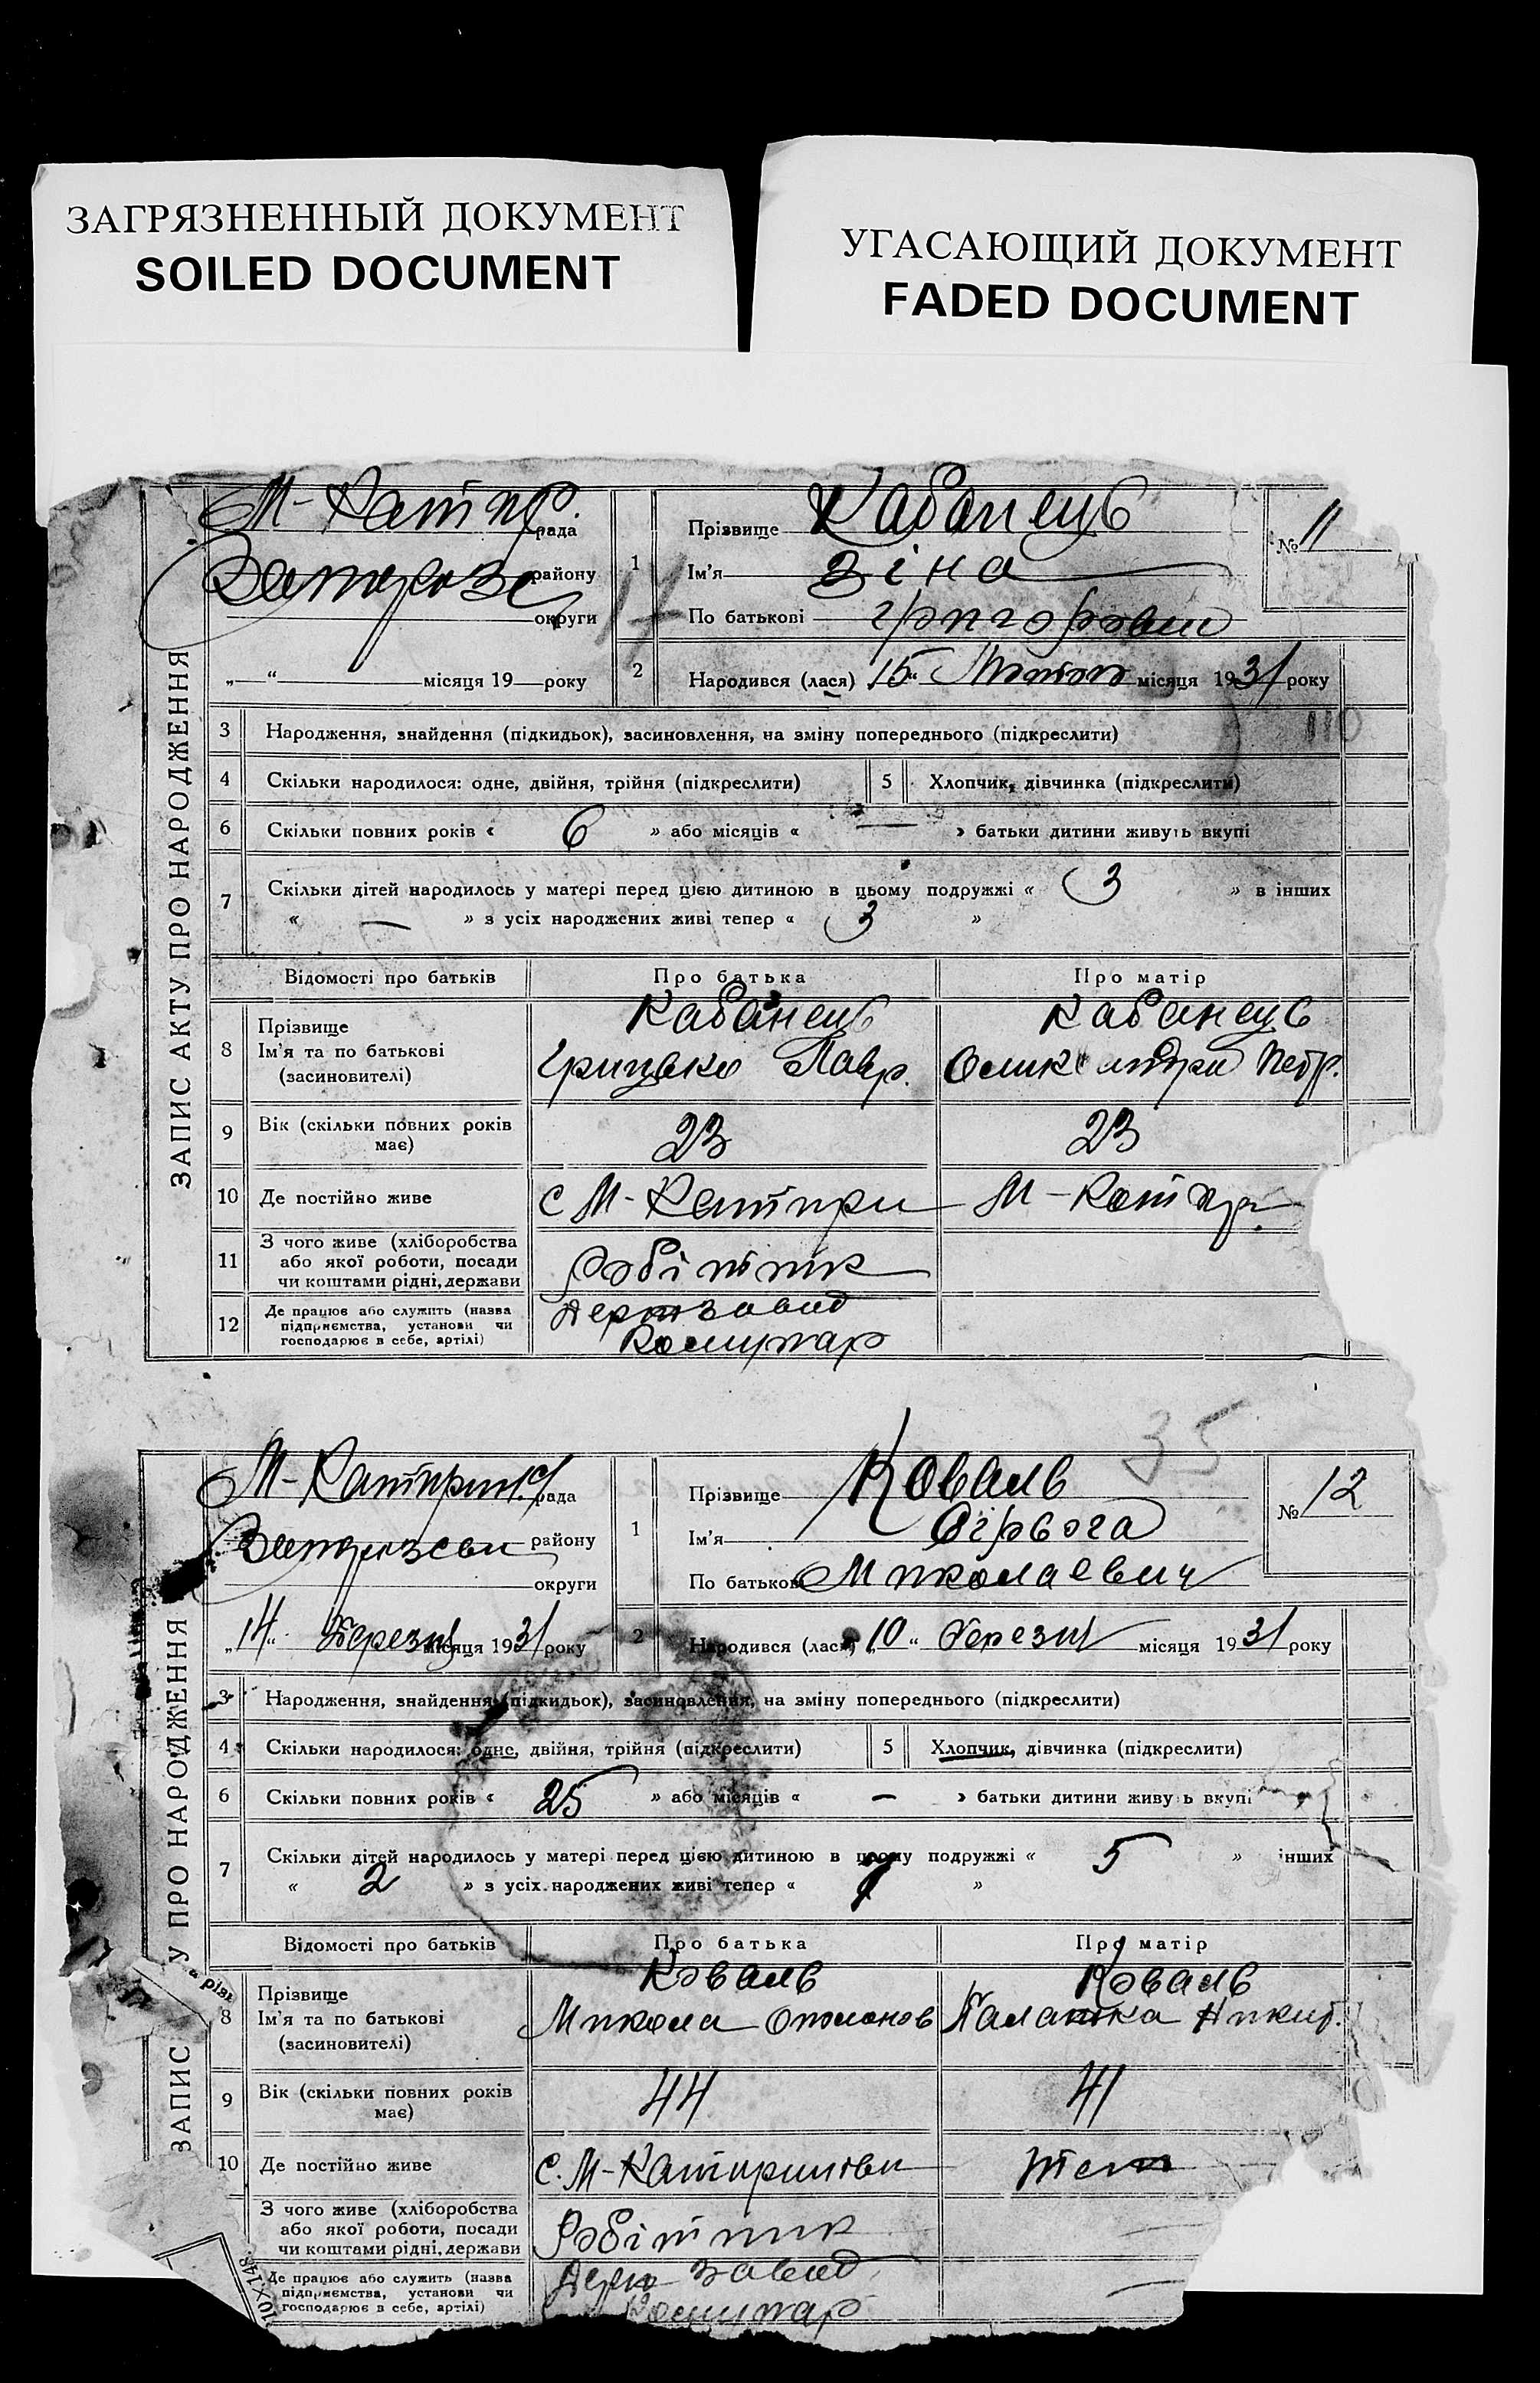 ЗАГРЯЗНЕННЫЙ ДОКУМЕНТ
SOILED DOCUMENT
УГАСАЮЩИЙ ДОКУМЕНТ
FADED DOCUMENT
ЗАПИС АКТУ ПРО НАРОДЖЕННЯ
М-Катпр. рада
району
округи
„ “ місяця 19 року
1
Прізвище Кабанець
Ім'я Зіна
По батькові
№ 11
2
Народився (лася) „15“ місяця 1931 року
110
3 Народження, знайдення (підкидьок), засиновлення, на зміну попереднього (підкреслити)
4 Скільки народилося: одне, двійня, трійня (підкреслити) 5 Хлопчик, дівчинка (підкреслити)
6 Скільки повних років « 6 » або місяців « — » батьки дитини живуть вкупі
7 Скільки дітей народилось у матері перед цією дитиною в цьому подружжі « 3 » в інших
« — » з усіх народжених живі тепер « 3 »
Відомості про батьків Про батька Про матір
8 Прізвище Кабанець Кабанець
Ім'я та по батькові Грицько Лавр. Петр.
(засиновителі)
9 Вік (скільки повних років має) 23 23
10 Де постійно живе с М-Катпри М-Катпр.
11 З чого живе (хліборобства або якої роботи, посади чи коштами рідні, держави Робітник
12 Де працює або служить (назва підприємства, установи чи господарює в себе, артілі) Держзавод
Комунар
35
ЗАПИС У ПРО НАРОДЖЕННЯ
рада
району
округи
„14“ Березня місяця 1931 року
1
Прізвище Коваль
Ім'я
По батькові Миколаевич
№ 12
2
Народився (лася) „10“ березня місяця 1931 року
3 Народження, знайдення (підкидьок), засиновлення, на зміну попереднього (підкреслити)
4 Скільки народилося: одне, двійня, трійня (підкреслити) 5 Хлопчик, дівчинка (підкреслити)
6 Скільки повних років « 25 » або місяців « – » батьки дитини живуь вкупі
7 Скільки дітей народилось у матері перед цією дитиною в цьому подружжі « 5 » інших
« 2 » з усіх народжених живі тепер « 7 »
Відомості про батьків Про батька Про матір
8 Прізвище Коваль Коваль
Ім'я та по батькові Микола Никит.
(засиновителі)
9 Вік (скільки повних років має) 44 41
10 Де постійно живе с. М-Катиринівки
З чого живе (хліборобства або якої роботи, посади чи коштами рідні, держави Робітник
Де працює або служить (назва підприємства, установи чи господарює в себе, артілі) завод
Комунар